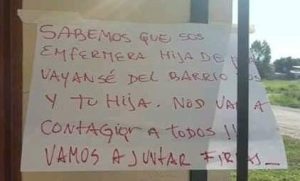 SABEMOS QUE SOS
ENFERMERA HIJA DE
VAYANSÉ DEL BARRIO
Y TU HIJA. NOS VAN A
CONTAGIAR A TODOS !!
VAMOS A JUNTAR FIRMAS